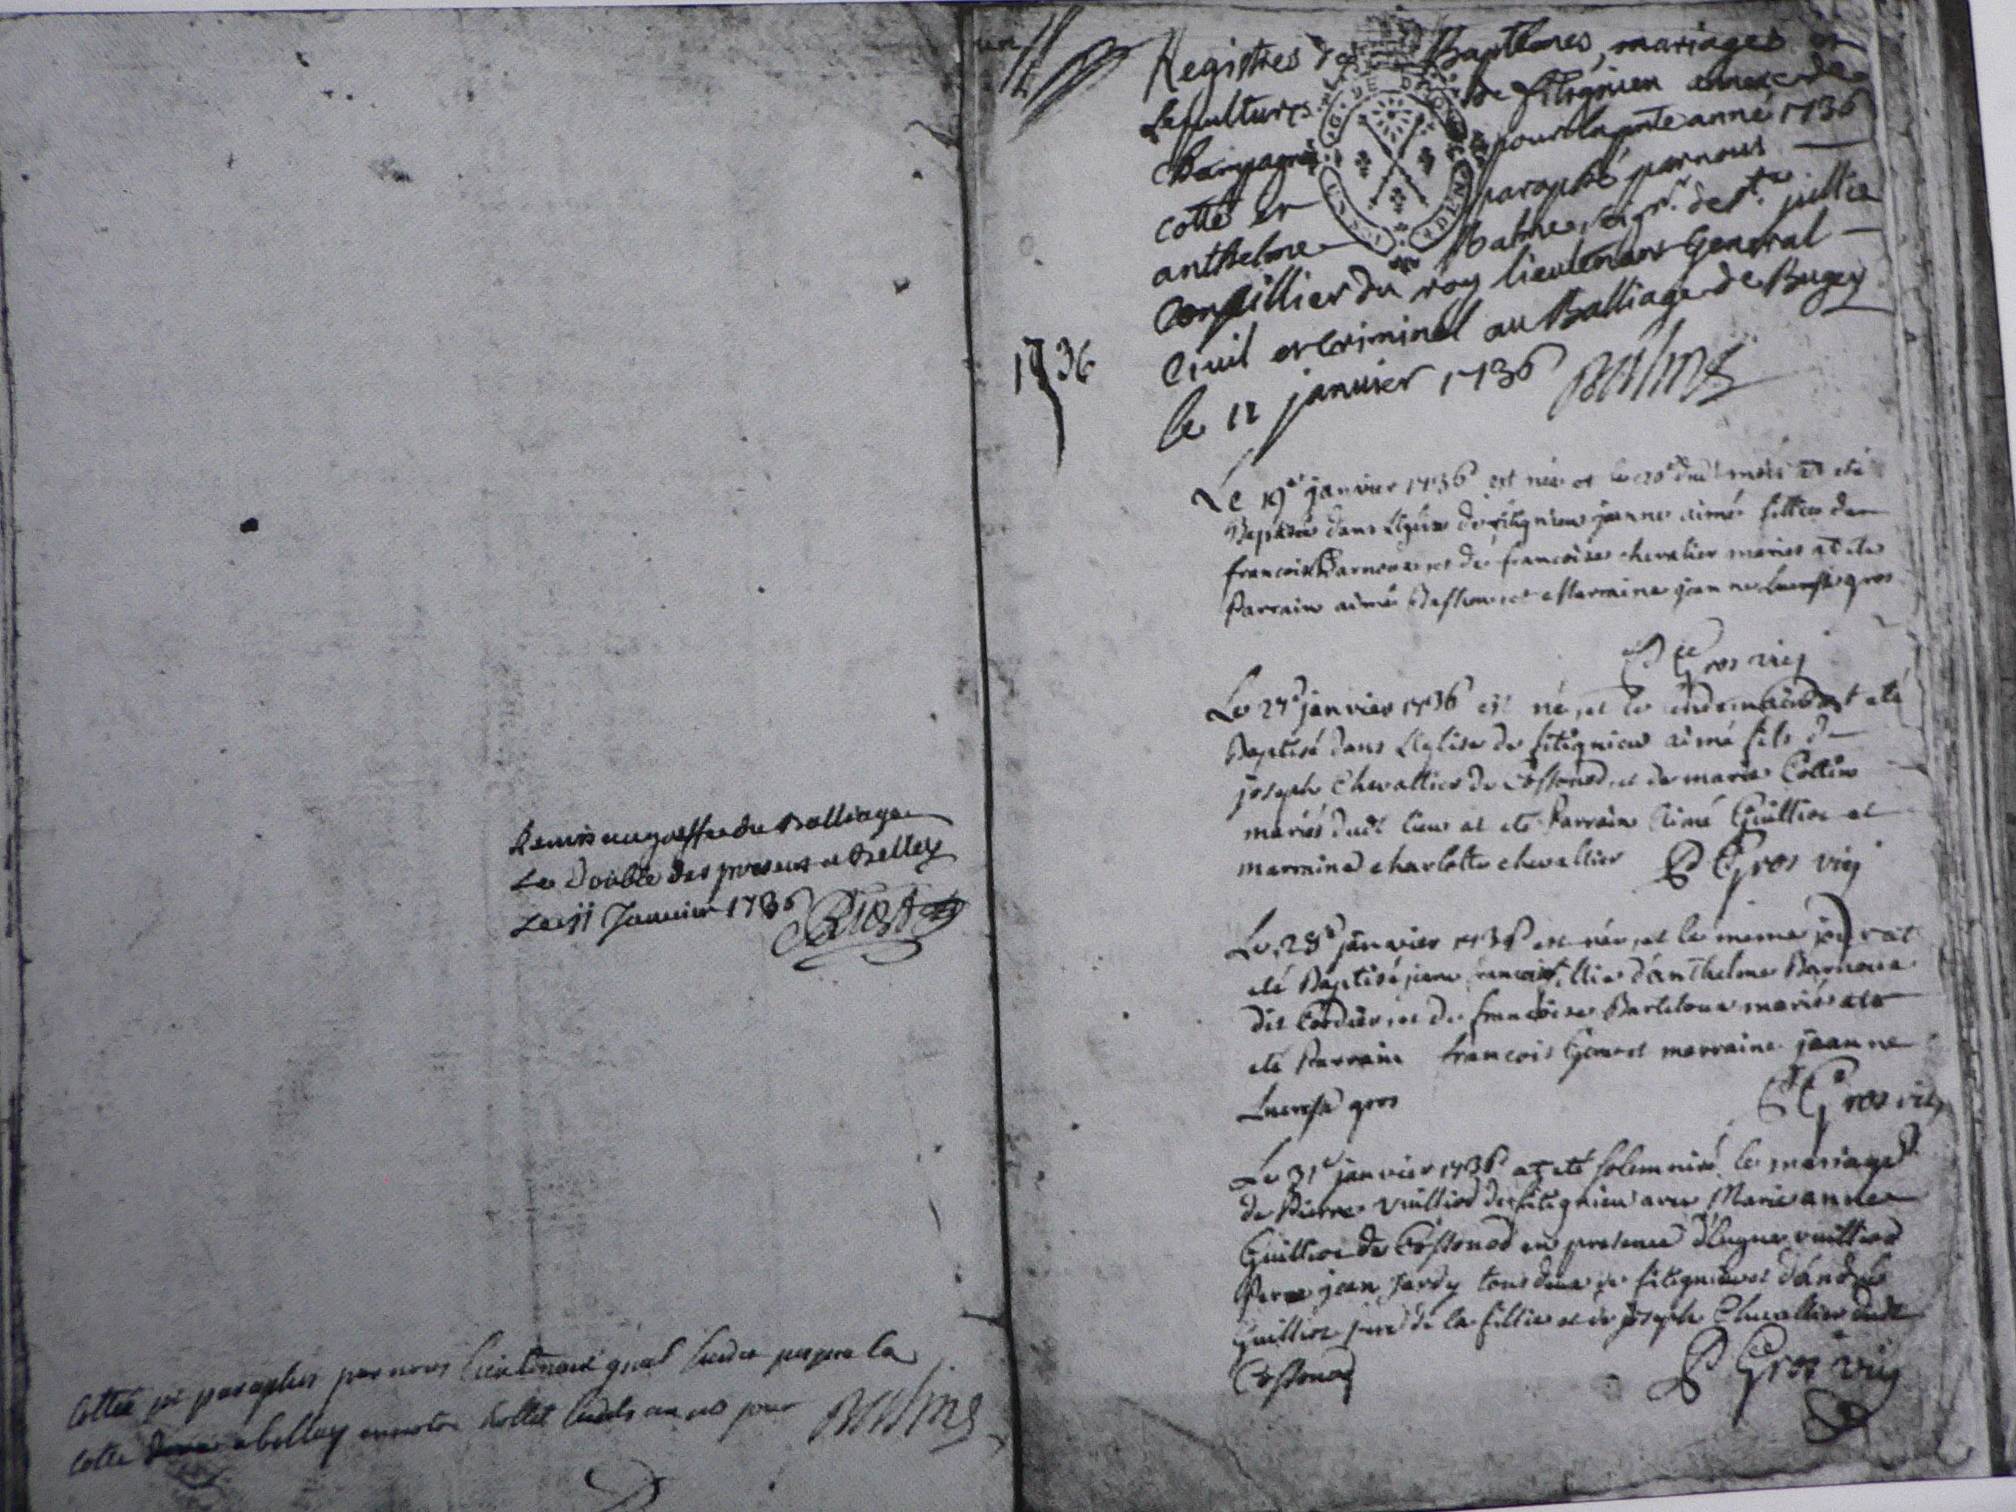 Remis au greffe du Balliage
Le double des presens a Belley
Le 11 Janvier 1736
cotté et paraphés par nous lieutenant gnal
cotte a belley
Balme
un
1736
Registres de Baptemes, mariages et
Sepultures de fitignieu annexe de
Champagne pour la pnte anné 1736
cotté et paraphé par nous
anthelme Balme, seigr. de Ste. jullie
Conseillier du roy lieutenant General
Civil et Criminel au Balliage de Bugey
le 11 janvier 1736 Balme
Le 19e janvier 1736 est née et le 20e dud mois at eté
Baptisée dans l'Eglise de fitignieu jeanne aimé fillie de
francois Barnoux et de francoise chevalier mariés at ete
Parrain aimé et Marraine jeanne Lucresse gros
Gros vic
Le 27e janvier 1736 est né, et le endemain at eté
Baptisé dans l'Eglise de fitignieu aimé fils de
joseph Chevallier de Cossonod, et de marie Collin
mariés dudt lieu at eté Parrain Aimé Guillioe et
marraine charlotte chevallier P Gros vic
Le 28e janvier 1736 est née, et le meme jour at
eté Baptisé jeane francoise fillie d'anthelme Barnoux
dit Cordier, et de francoise Barleloux mariés ate
eté Parrain francois Genet marraine jeanne
Lucresse gros
P Gros vic
Le 31e janvier 1736 at eté solemnisé le mariage
de Pierre Vuilliod de fitignieu avec Marie anne
Guillioe de Cossonod en presence d'hugue vuilliod
Perre jean Jardy tous deux de fitignieu et d'andré
Guillioe pere de la fillie et de joseph Chevallier dudt
Cossonod
P Gros vic